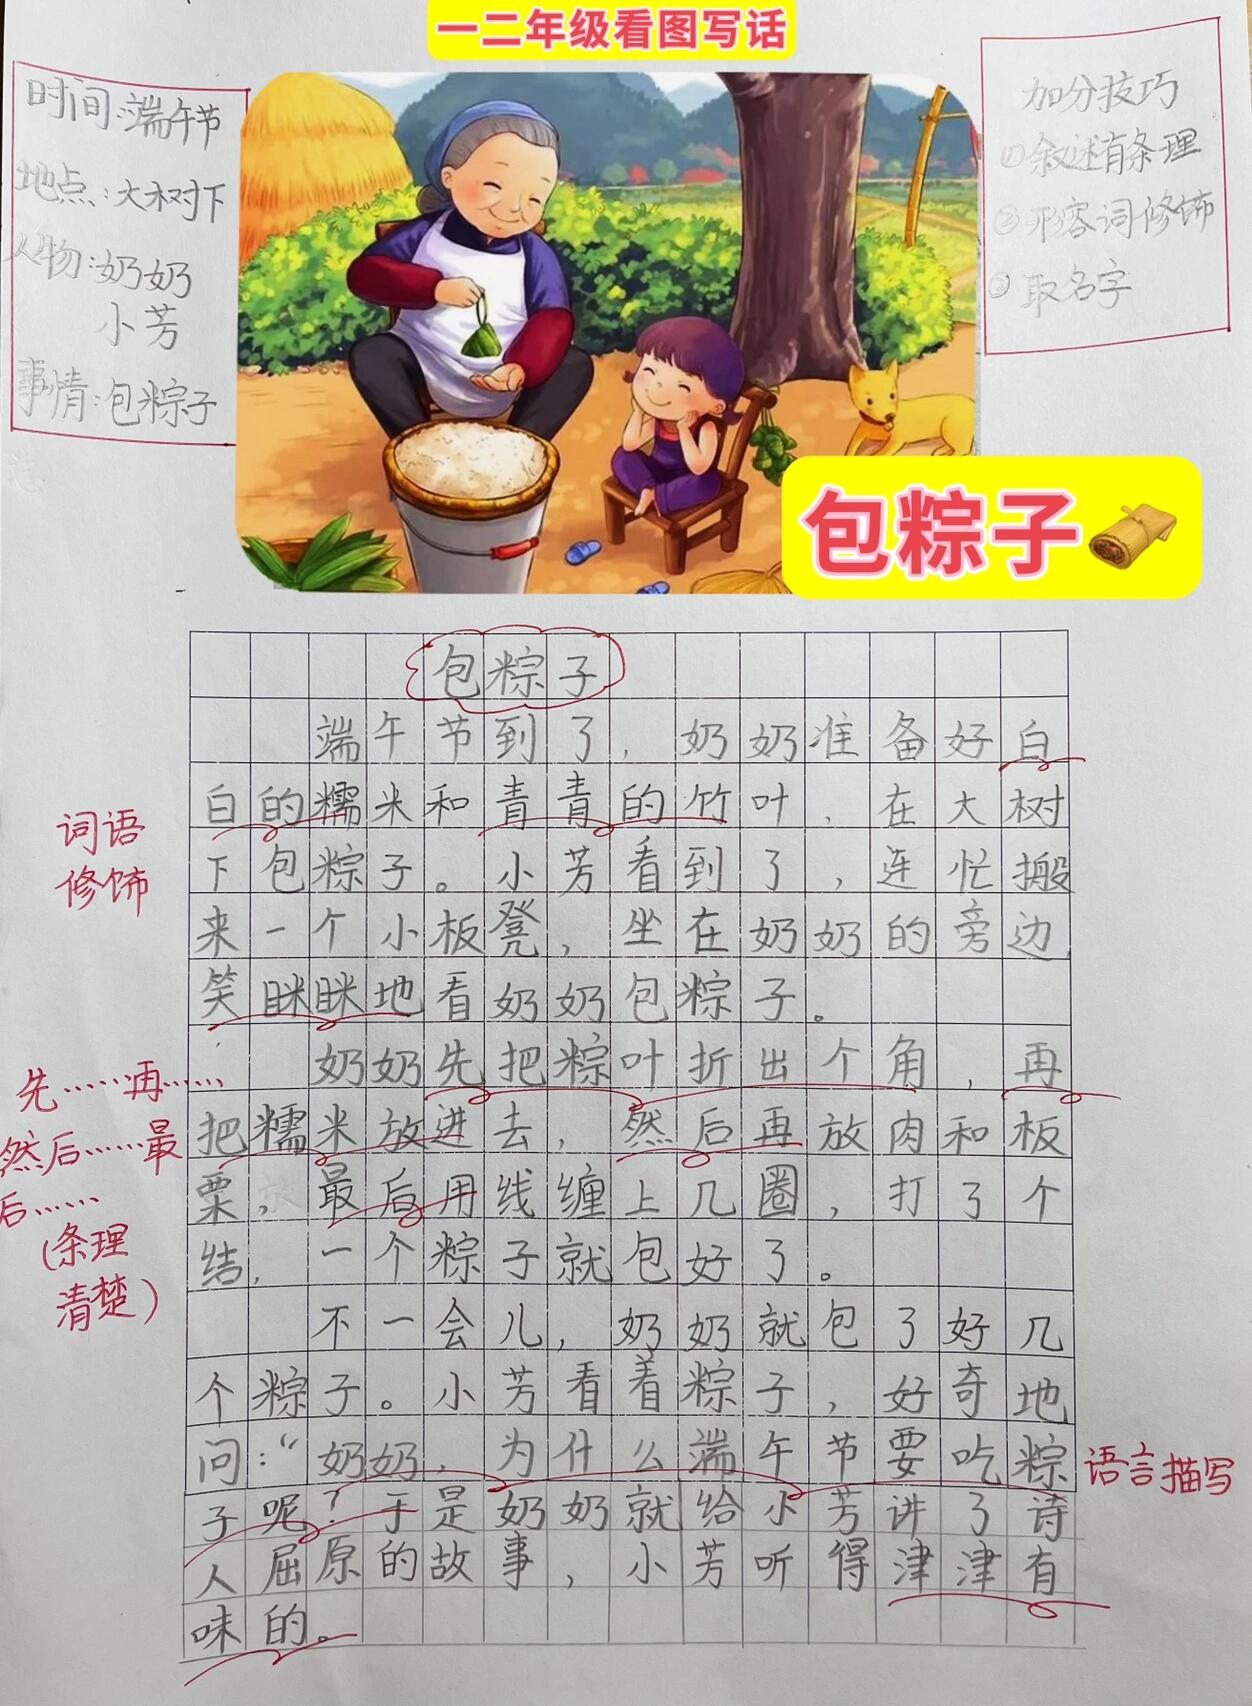 一二年级看图写话
时间:端午节
地点:大树下
人物:奶奶
小芳
事情:包粽子
加分技巧
①叙述有条理
②形容词修饰
③取名字
包粽子
包粽子
端午节到了，奶奶准备好白
白的糯米和青青的竹叶，在大树
下包粽子。小芳看到了，连忙搬
来一个小板凳，坐在奶奶的旁边,
笑眯眯地看奶奶包粽子。
奶奶先把粽叶折出个角，再
把糯米放进去，然后再放肉和板
栗，最后用线缠上几圈，打了个
结，一个粽子就包好了。
不一会儿，奶奶就包了好几
个粽子。小芳看着粽子，好奇地
问:“奶奶，为什么端午节要吃粽
子呢?于是奶奶就给小芳讲了诗
人屈原的故事，小芳听得津津有
味的。
词语
修饰
先……再……
然后……最
后……
(条理
清楚)
语言描写